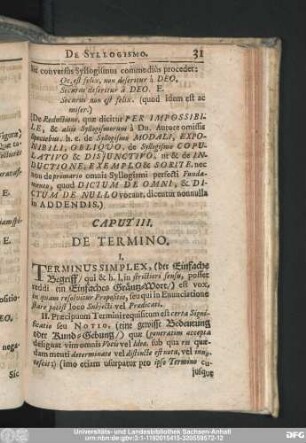 DE SYLLOGISMO. 31
sic conversus Syllogismus commodius procedet:
Qu. est felix, non deseritur à DEO.
Securus deseritur à DEO. E.
Securus non est felix. (quod idem est ac
miser.)
(De Reductione, quæ dicitur PER IMPOSSIBI-
LE, & aliis Syllogismorum à Dn. Autore omissis
speciebus. h. e. de Syllogismo MODALI, EXPO-
NIBILI, OBLIQUO, de Syllogismo COPU-
LATIVO & DISJUNCTIVO, ut & de IN-
DUCTIONE, EXEMPLO & SORITE, nec
non de primario omnis Syllogismi perfecti Funda-
mento, quod DICTUM DE OMNI, & DI-
CTUM DE NULLO vocant, dicentur nonnulla
in ADDENDIS.)
CAPUT III.
DE TERMINO.
I.
TERMINUS SIMPLEX, (der Einfache
Begriff/ qui & h. l. in strictiori sensu, posset
reddi ein Einfaches Gräntz-Wort/) est vox,
in quam resolvitur Propositio, seu qui in Enunciatione
Rare ponitur loco Subjecti vel Prædicati.
II. Præcipuum Termini requisitum est certa Signi-
ficatio seu NOTIO, (eine gewisse Bedeutung
oder Kund-Gebung/) quæ (generatim accepta
designat vim omnis Vocis vel Idea, sub qua res quæ-
dam menti determinate vel distincte est nota, vel inno-
tescit:) (imo etiam usurpatur pro ipso Termino cu-
jusque
Sic
Universitäts- und Landesbibliothek Sachsen-Anhalt
urn:nbn:de:gbv:3:1-1192015415-330559572-12
DFG